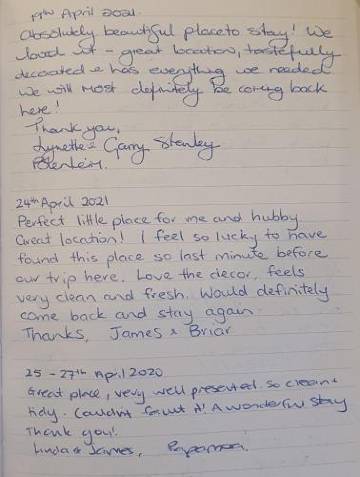 19th April 2021.
Absolutely beautiful place to stay! We
loved it - great location, tastefully
decorated & has everything we needed
We will most definitely be coming back
here!
Thank you,
Lynette & Garry Stanley
Blenheim.
24th April 2021
Perfect little place for me and hubby
Great location! I feel so lucky to have
found this place so last minute before
our trip here. Love the decor, feels
very clean and fresh. Would definitely
come back and stay again.
Thanks, James & Briar
25 - 27th April 2020
Great place, very well presented so clean +
tidy. Couldn't fault it! A wonderful stay
Thank you!
Linda & James, Papamoa.